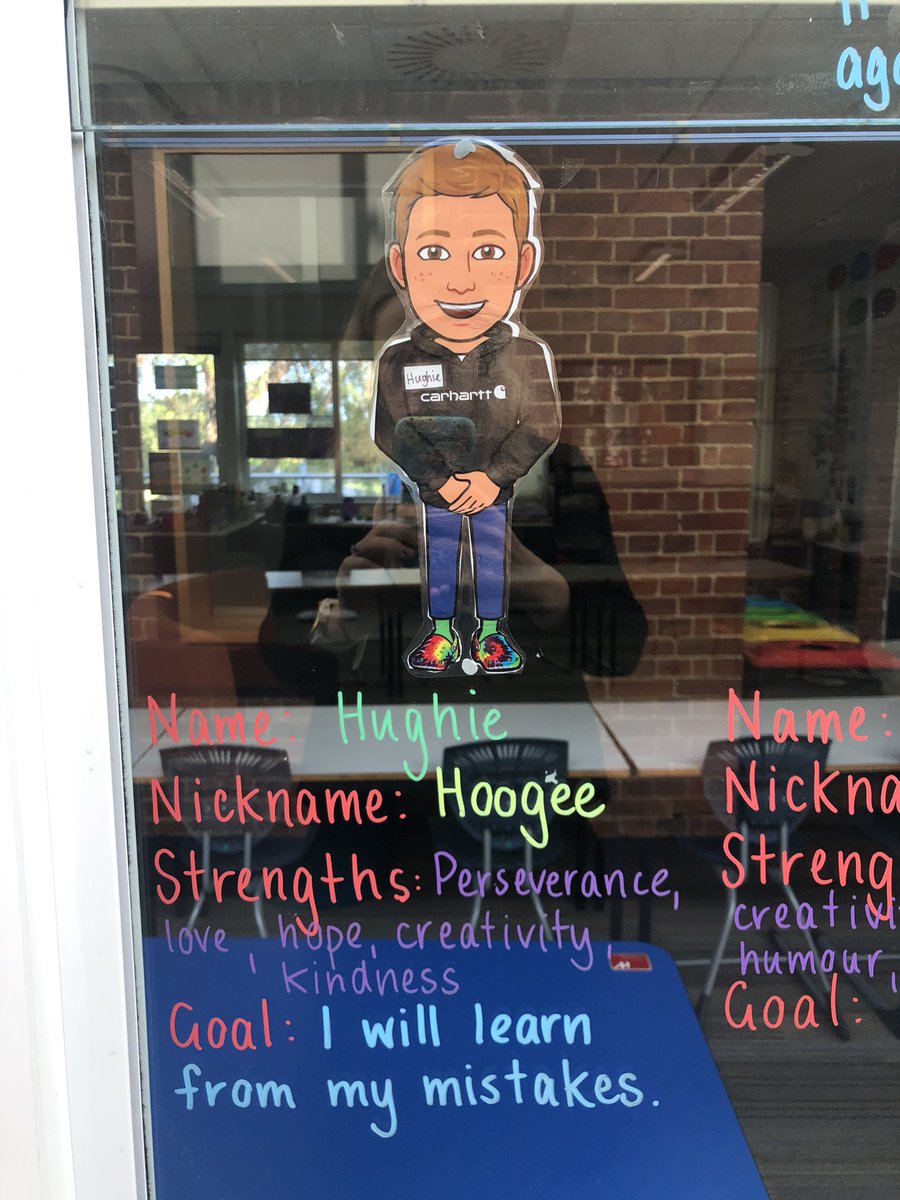 aga
Hughie
carhartt
Name: Hughie
Name:
Nickname: Hoogee
Nickna
Strengths: Perseverance,
love, hope, creativity,
kindness
Streng
creativi
humour,
Goal: I will learn
from my mistakes.
Goal: